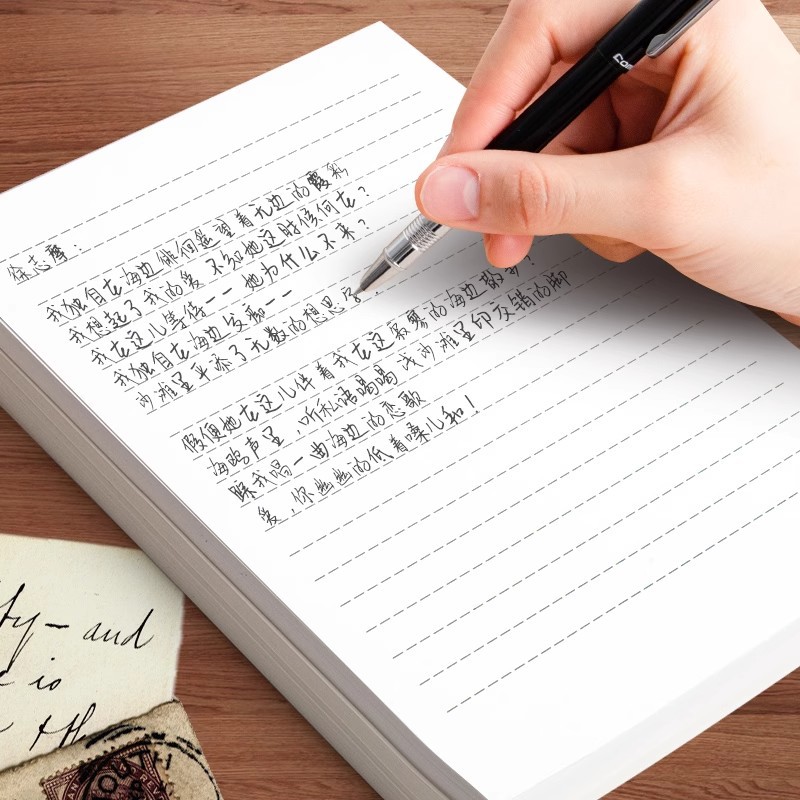 徐志摩:
我独自在海边徘徊遥望着无边的霞彩
我想起了我的爱 不知她这时候何在?
我在这儿等待-- 她为什么不来?
我独自在海边发痴--
沙滩里平添了无数的想思字.
假使她在这儿伴着我在这寂寥的海边散步?
海鸥声里,听私语喁喁 浅沙滩里印交错的脚
踩我唱一曲海边的恋歌
爱,你幽幽的低着嗓儿和!
ty- and
is
th